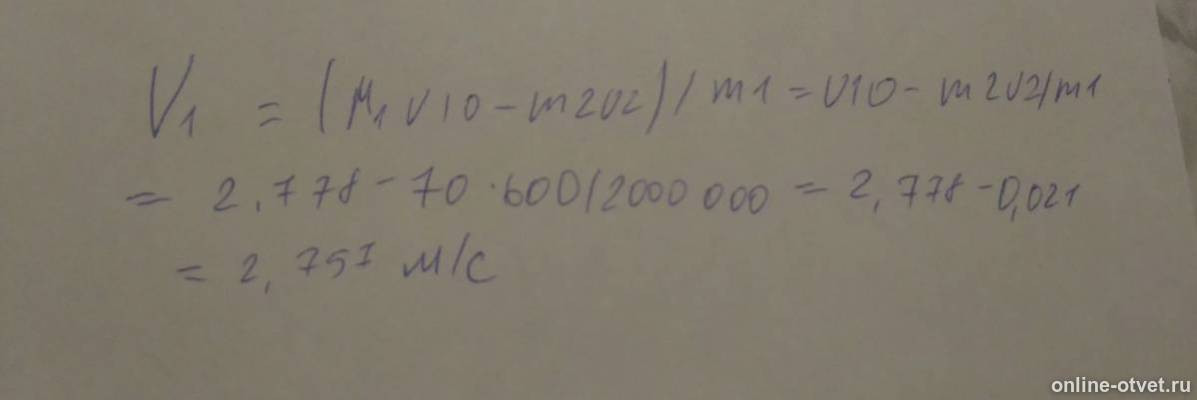 V1 = (M1 V10 - m2V2) / m1 = V10 - m2V2/m1
= 2.778 - 70 · 600/2000 000 = 2,778 - 0,021
= 2,757 м/с
online-otvet.ru